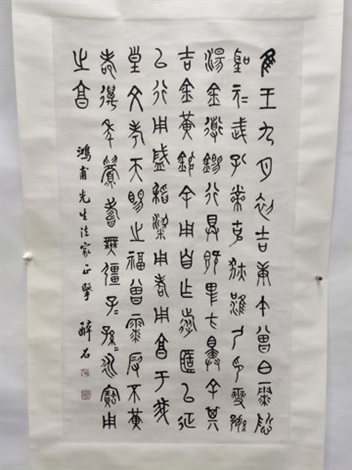 隹王九月初吉庚午曾白霥悊
聖元=武孔黹克狄淮尸印燮繁
湯金道錫行具既卑方余擇其
吉金黃鋁余用自乍旅匡以征
以行用盛稻粱用孝用享于我
皇文考天賜之福曾霥叚不黃
耇萬年眉壽無疆子=孫=永寶用
之享
鴻甫先生法家正擘 醉石